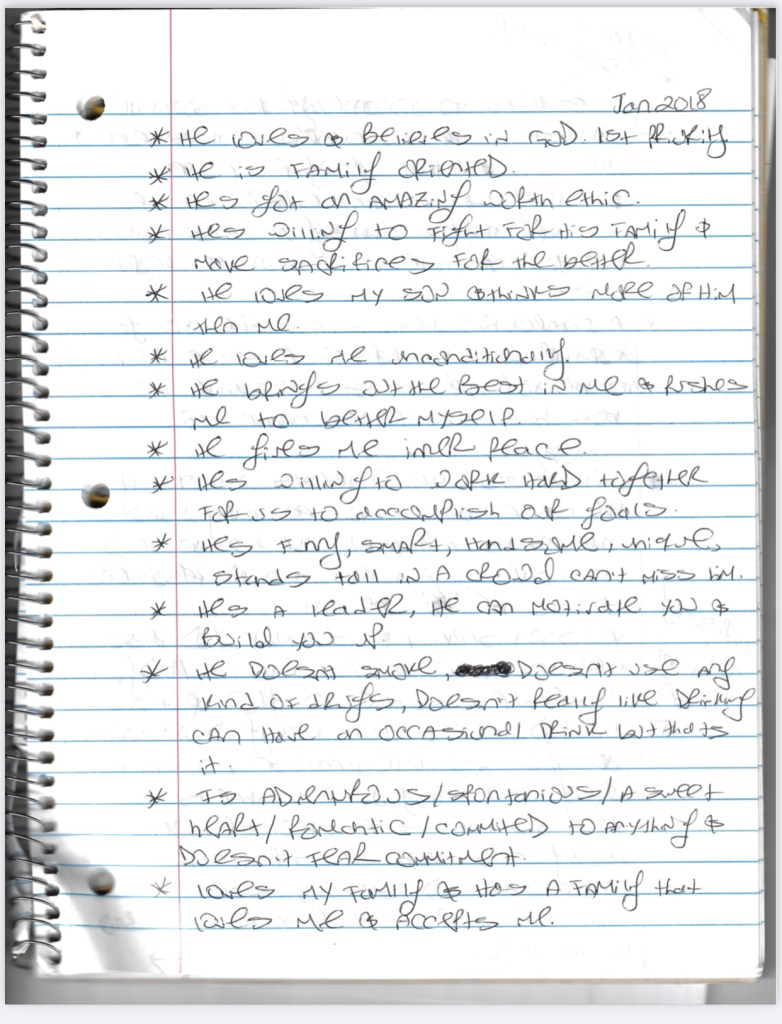 Jan 2018
* He loves & Believes in GOD. 1st Priority
* He is FAMily ORIENTED.
* Hes got an AMAZING worth ethic.
* Hes willing to Fight FOR His FAMily &
Make sacrifices FOR the better.
* He loves MY SON & thinks More of HIM
then Me.
* He loves Me unconditionally.
* He brings out the Best in Me & Pushes
Me to better Myself.
* He gives Me inner Peace.
* Hes willing to work HARD together
FOR us to accomplish our goals.
* Hes Funny, SMART, Handsome, unique,
stands tall IN A CROWD CAN'T Miss him.
* Hes A leader, He can Motivate you &
Build you up
* He Doesn't smoke, Doesn't use any
kind of drugs, Doesn't Really like Drinking
CAN Have an OCCASional DRINK but thats
it.
* Is ADventurous/spontanious/A sweet
heart/Romantic/commited to anything &
Doesn't FEAR commitment.
* loves MY FAMily & Has A FAMily that
loves Me & Accepts Me.